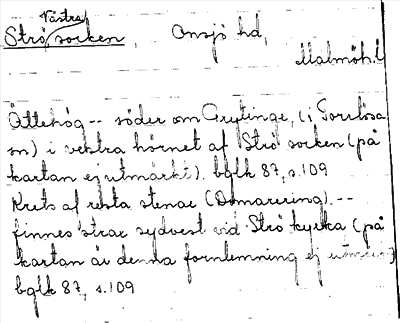 Västra
Strö socken, Onsjö hd,
Malmöh. l
Ättehög -- söder om Grytinge, (i Torrlösa
sn) i vestra hörnet af Strö socken (på
kartan ej utmärkt). bglk 87, s. 109
Krets af resta stenar (Domarering) --
finnes strax sydvest vid Strö kyrka (på
kartan är denna fornlemning ej
bglk 87, s. 109